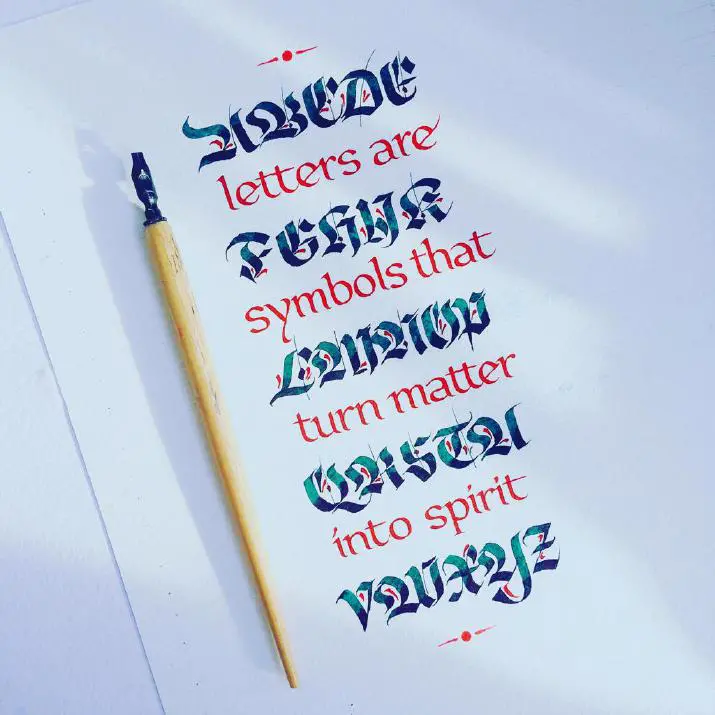 ABCDE
letters are
FGHIJK
symbols that
LMNOP
turn matter
QRSTU
into spirit
VWXYZ